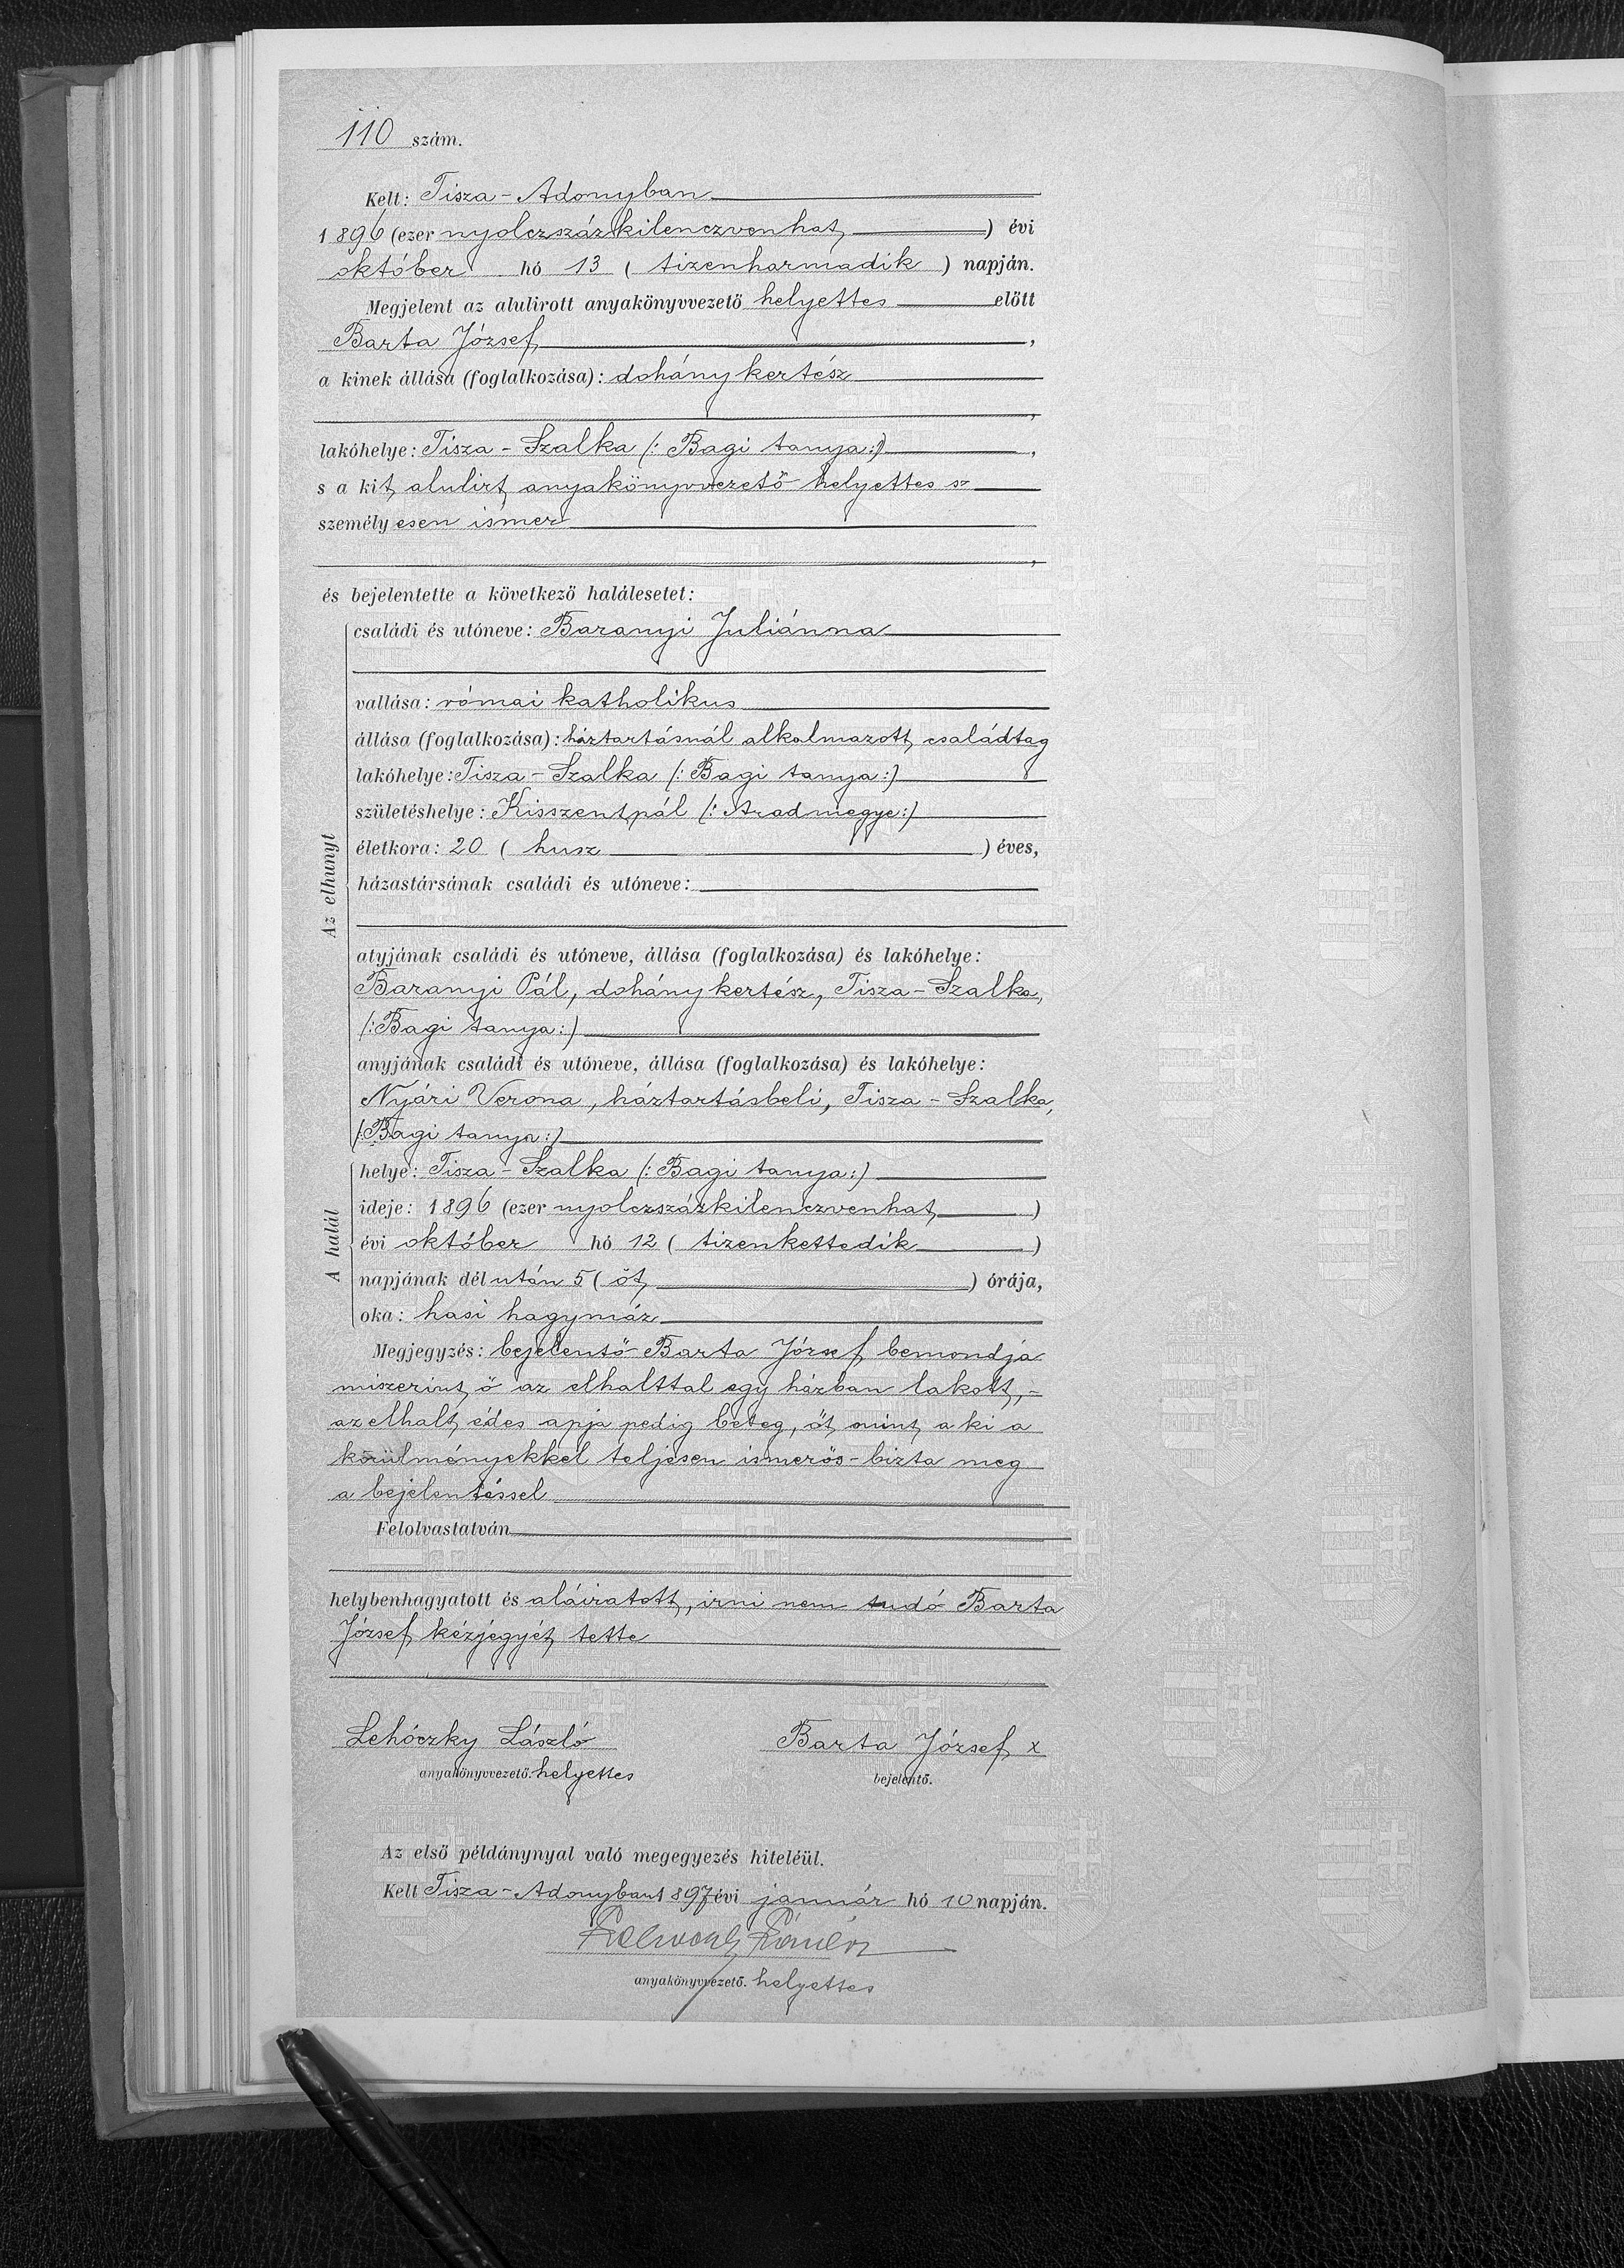 110 szám.
Kelt: Tisza-Adonyban
1896 (ezer nyolczszázkilenczvenhat) évi
október hó 13 (tizenharmadik) napján.
Megjelent az alulirott anyakönyvvezető helyettes előtt
Barta József,
a kinek állása (foglalkozása): dohánykertész
,
lakóhelye: Tisza-Szalka (: Bagi tanya:),
s a kit alulirt anyakönyvvezető helyettes sz
személyesen ismer
,
és bejelentette a következő halálesetet:
Az elhunyt
családi és utóneve: Baranyi Juliánna
vallása: római katholikus
állása (foglalkozása): háztartásnál alkalmazott családtag
lakóhelye: Tisza-Szalka (: Bagi tanya:)
születéshelye: Kisszentpál (: Aradmegye:)
életkora: 20 (husz) éves,
házastársának családi és utóneve:
atyjának családi és utóneve, állása (foglalkozása) és lakóhelye:
Baranyi Pál, dohánykertész, Tisza-Szalka,
(: Bagi tanya:)
anyjának családi és utóneve, állása (foglalkozása) és lakóhelye:
Nyári Verona, háztartásbeli, Tisza-Szalka,
(: Bagi tanya:)
A halál
helye: Tisza-Szalka (: Bagi tanya:)
ideje: 1896 (ezer nyolczszázkilenczvenhat)
évi október hó 12 (tizenkettedik)
napjának délután 5 (öt) órája,
oka: hasi hagymáz
Megjegyzés: bejelentő Barta József bemondja
miszerint ő az elhalttal egy házban lakott,-
az elhalt édes apja pedig beteg, őt mint a ki a
körülményekkel teljesen ismerős-bizta meg
a bejelentéssel
Felolvastatván
helybenhagyatott és aláiratott, irni nem tudó Barta
József kézjegyét tette
Lehóczky László Barta József x
anyakönyvvezető. helyettes bejelentő.
Az első példánynyal való megegyezés hiteléül.
Kelt Tisza-Adonyban 1897 évi január hó 10 napján.
anyakönyvvezető. helyettes